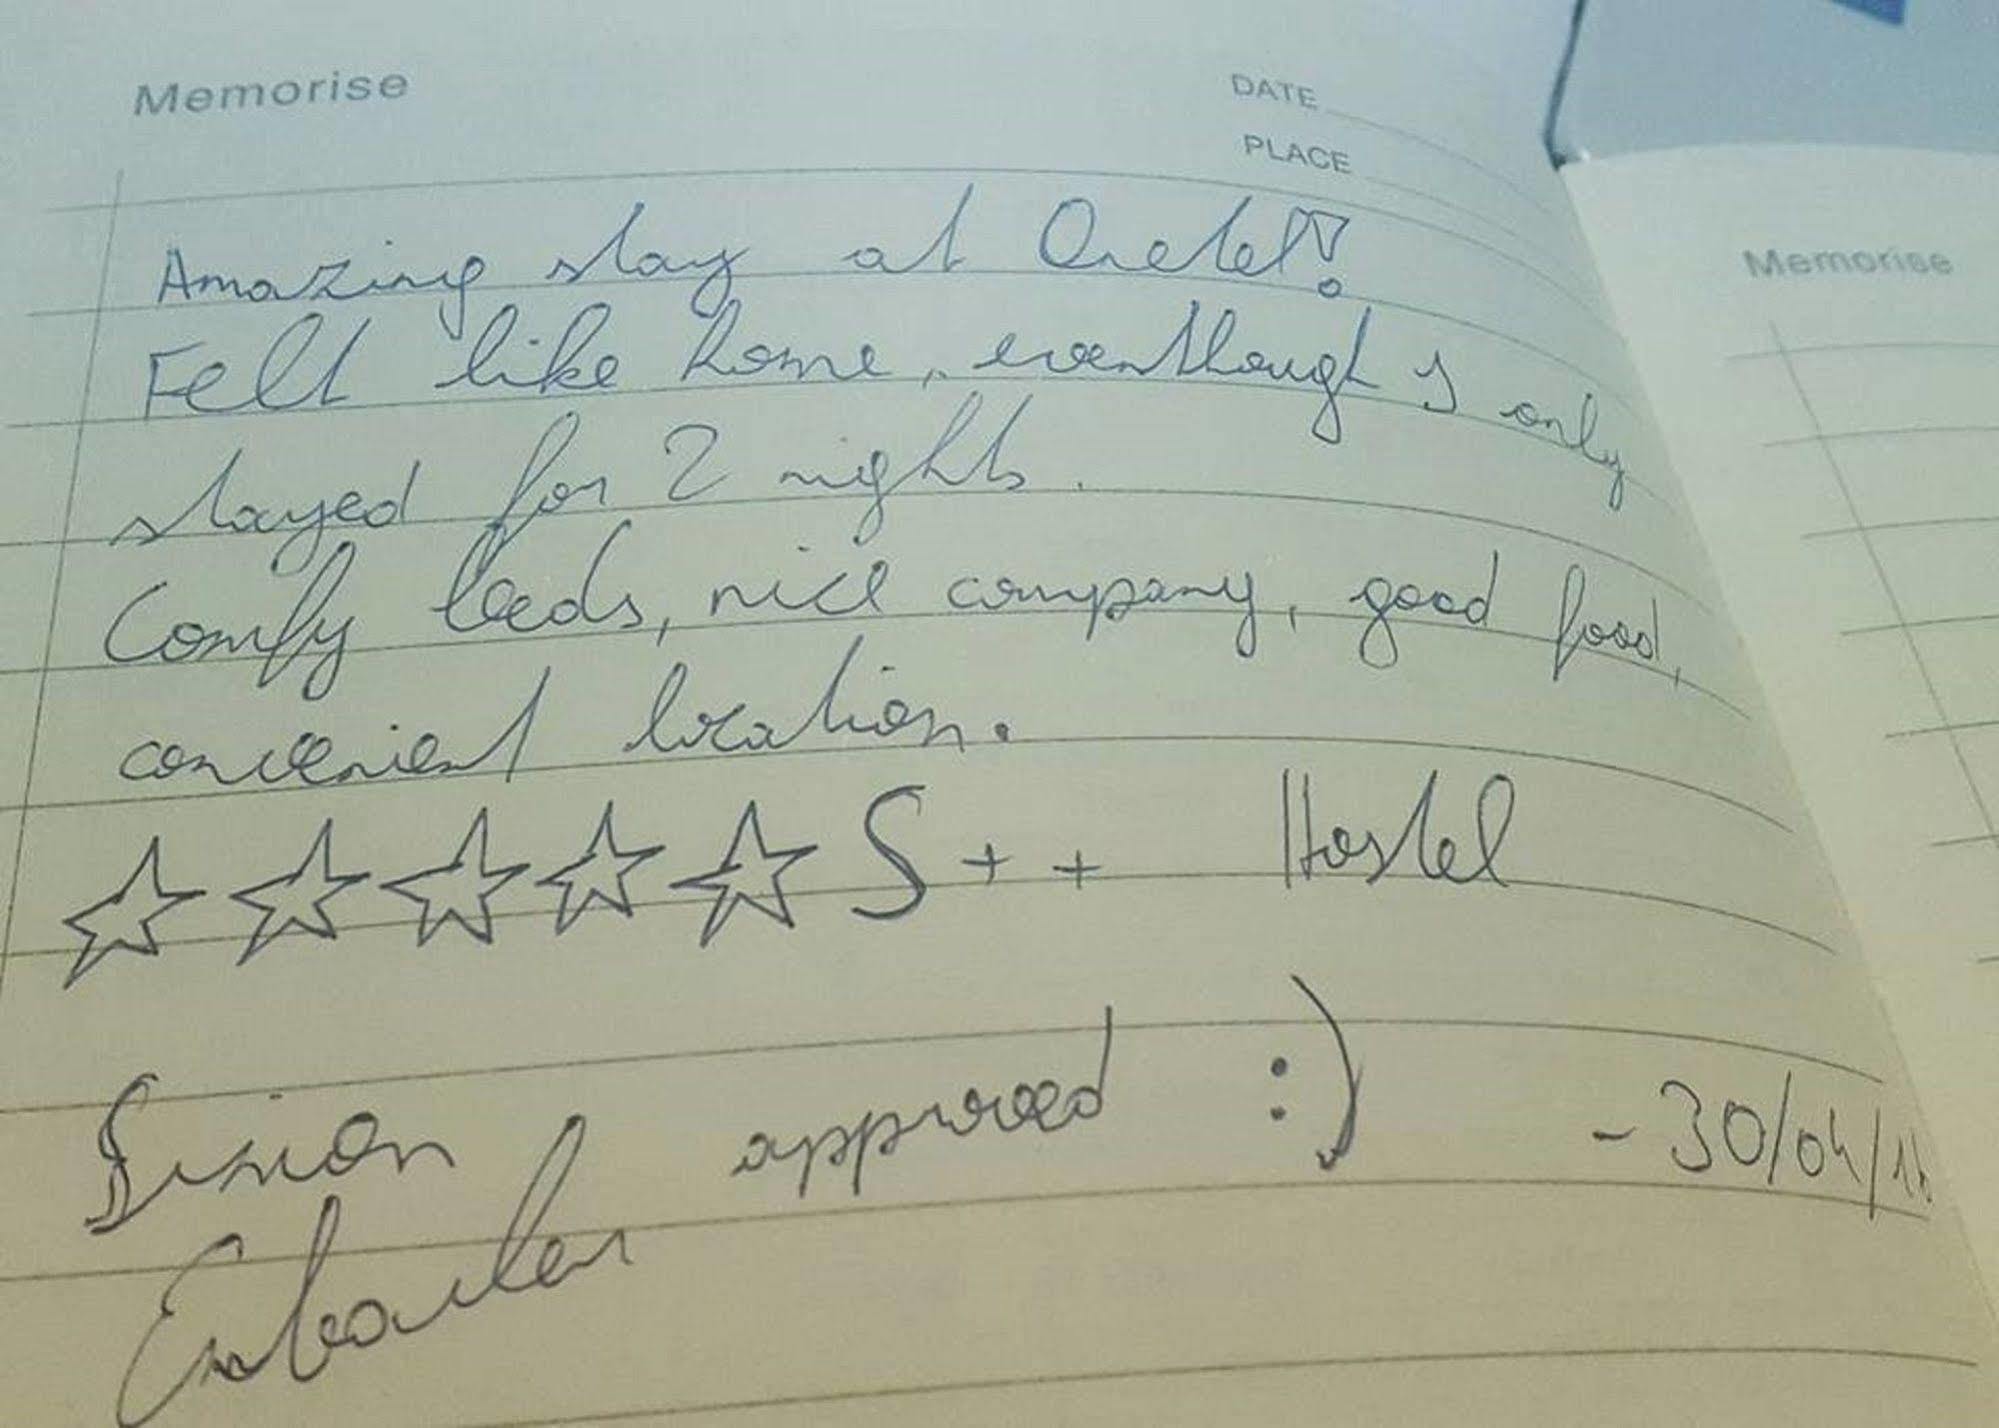 Memorise
DATE
PLACE
Amazing stay at Oretel!
Felt like home, eventhough I only
stayed for 2 nights.
Comfy beds, nice company, good food,
convenient location.
☆☆☆☆☆ S++ Hostel
Simon approved :) - 30/04/
Memorise